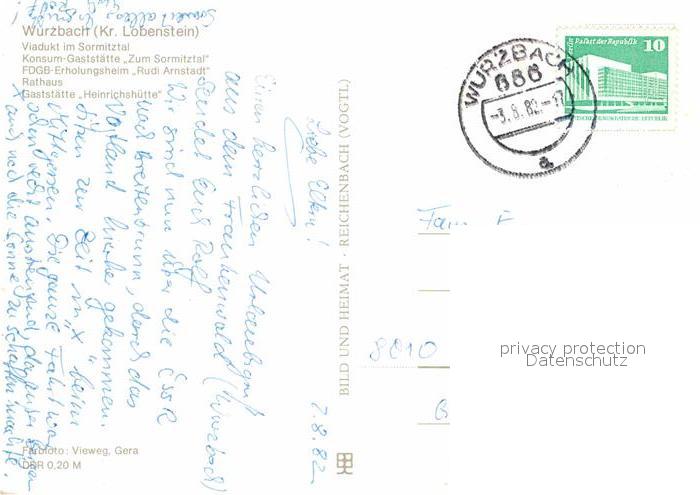 Wurzbach (Kr. Lobenstein)
Viadukt im Sormitztal
Konsum-Gaststätte „Zum Sormitztal"
FDGB-Erholungsheim „Rudi Arnstadt"
Rathaus
Gaststätte „Heinrichshütte"
2.8.82
Liebe Eltern!
Einen herzlichen Urlaubsgruß
aus dem Frankenwald (Wurzbach)
sendet Euch Ralf
Wir sind nun über die ČSSR
und Breitenbrunn, durch das
Vogtland hierher gekommen.
sitzen zur Zeit in „X" beim
Mittagessen. Die ganze Fahrt war
und die Sonne zu schaffen machte.
Farbfoto: Vieweg, Gera
DDR 0,20 M
BILD UND HEIMAT · REICHENBACH (VOGTL)
WURZBACH
686
-3.8.82-17
a
Berlin Palast der Republik
10
DEUTSCHE DEMOKRATISCHE REPUBLIK
Fam. F
8010
privacy protection
Datenschutz